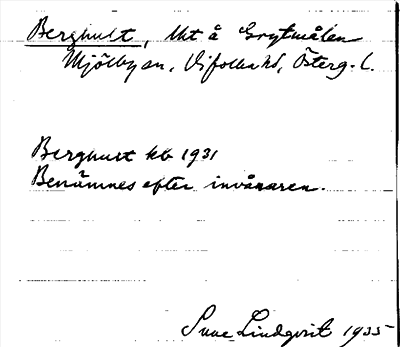 Berghult, lht å Grytmålen
Mjölby sn, Vifolka hd, Österg. l.
Berghult kb 1931
Benämnes efter invånaren.
Sune Lindqvist 1935